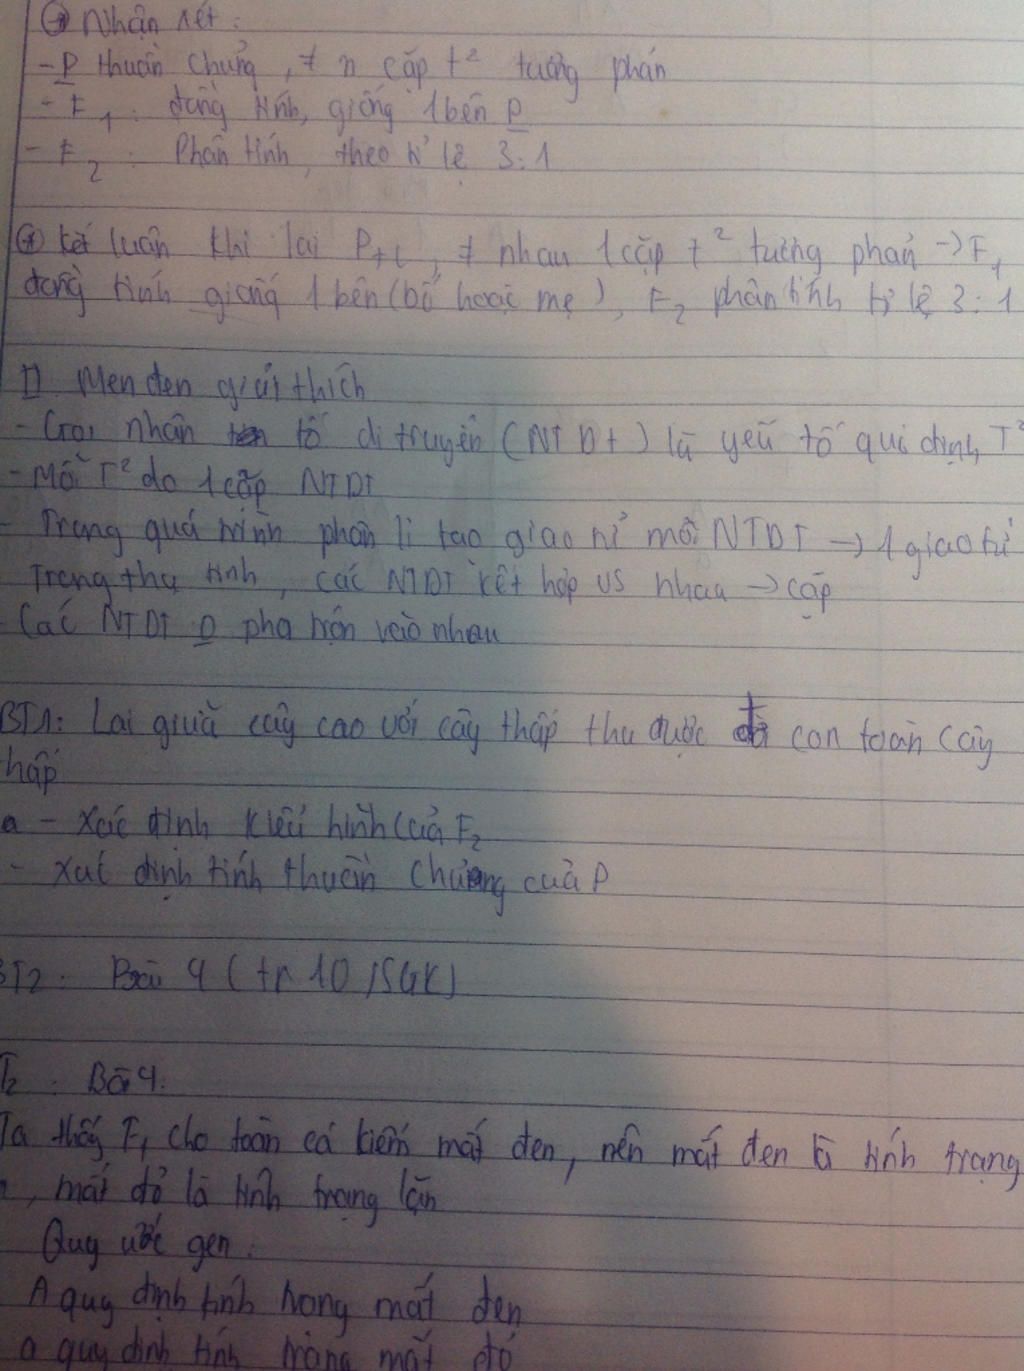 Nhận xét:
- P thuần chủng, ≠ n cặp t² tương phản
- F₁: đồng tính, giống 1 bên P
- F₂: Phân tính, theo tỉ lệ 3:1
Kết luận khi lai Pt/c, ≠ nhau 1 cặp t² tương phản → F₁
đồng tính giống 1 bên (bố hoặc mẹ), F₂ phân tính tỷ lệ 3:1
Menđen giải thích
- Gọi nhân tố di truyền (NTDt) là yếu tố qui định T²
- Mỗi T² do 1 cặp NTDT
- Trong quá trình phân li tạo giao tử mỗi NTDT → 1 giao tử
Trong thụ tinh, các NTDT kết hợp vs nhau → cặp
- Các NTDT o pha trộn vào nhau
BT1: Lai giữa cây cao với cây thấp thu được con toàn cây
thấp
a - Xác định kiểu hình của F₂
- Xác định tính thuần chủng của P
BT2: Bài 4 (tr 10 / SGK)
T2: Bài 4:
Ta thấy F₁ cho toàn cá kiếm mắt đen, nên mắt đen là tính trạng
, mắt đỏ là tính trạng lặn
Quy ước gen:
A quy định tính trạng mắt đen
a quy định tính trạng mắt đỏ